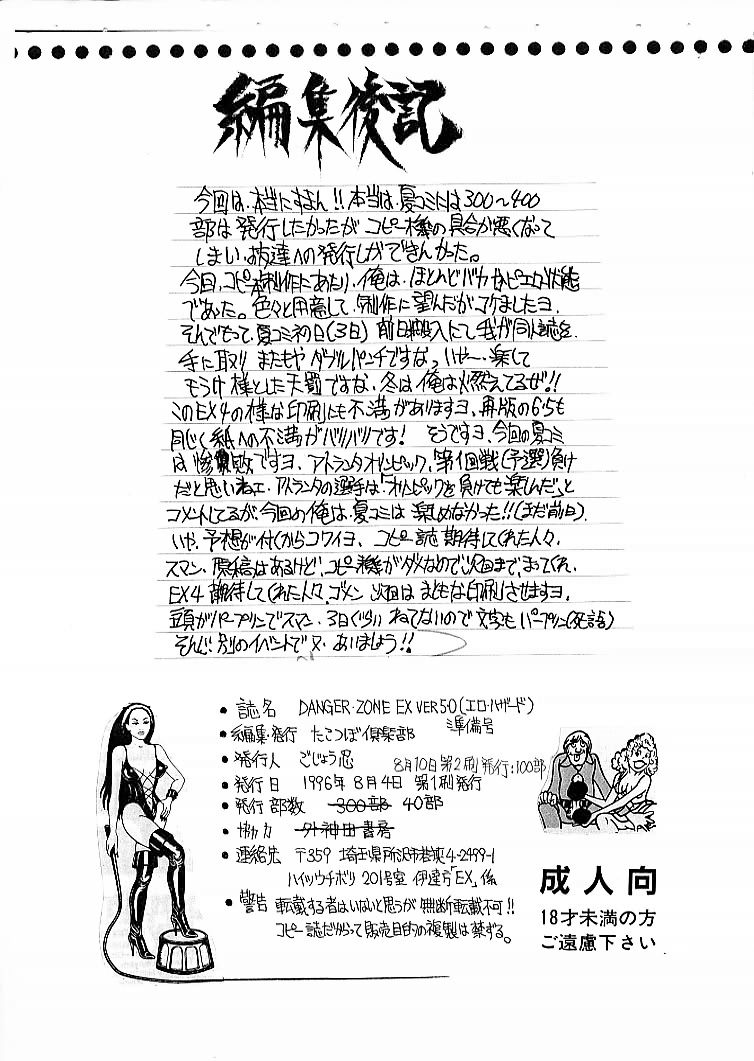 編集後記
今回は、本当にすまん!!本当は、夏コミには300〜400
部は発行したかったがコピー機の具合が悪くなって
しまい、お友達への発行しかできんかった。
今回、コピー本制作にあたり、俺は、ほとんどバカなピエロ状態
であった。色々と用意して、制作に望んだがコケましたヨ、
そんでもって、夏コミ初日(3日)前日搬入にて我が同人誌を、
手に取り またもや ダブルパンチですな。いや〜、楽して
もうけ様とした天罰ですな、冬は俺は燃えてるぜ!!
このEX4の様な印刷にも不満がありますヨ、再版の6.5も
同じく紙への不満がバリバリです! そうですヨ、今回の夏コミ
は惨敗ですヨ、アトランタオリンピック、第1回戦(予選)負け
だと思いねェ、アトランタの選手は「オリンピックを負けても楽しんだ」と
コメントしてるが、今回の俺は、夏コミは楽しめなかった!!(まだ前日)、
いや、予想が付くからコワイヨ、コピー誌期待してくれた人々、
スマン、原稿はあるけど、コピー機がダメなので次回まで、まってくれ、
EX4期待してくれた人々、ゴメン 次回は まともな印刷させますヨ、
頭がパープリンでスマン、3日ぐらい ねてないので 文字も パープリン(死語)
そんじゃ 別のイベントで 又、あいましょう!!
• 誌名 DANGER・ZONE EX VER5・0(エロ・ハザード)
準備号
• 編集・発行 たこつぼ倶楽部
• 発行人 ごじょう忍
8月10日第2刷発行:100部
• 発行日 1996年8月4日 第1刷発行
• 発行部数 300部 40部
• 協力 外神田書房
• 連絡先 〒359 埼玉県所沢市若狭4-2499-1
ハイツウチボリ 201号室 伊達方「EX」係
• 警告 転載する者はいないと思うが 無断転載不可!!
コピー誌だからって販売目的の複製は禁ずる。
成人向
18才未満の方
ご遠慮下さい